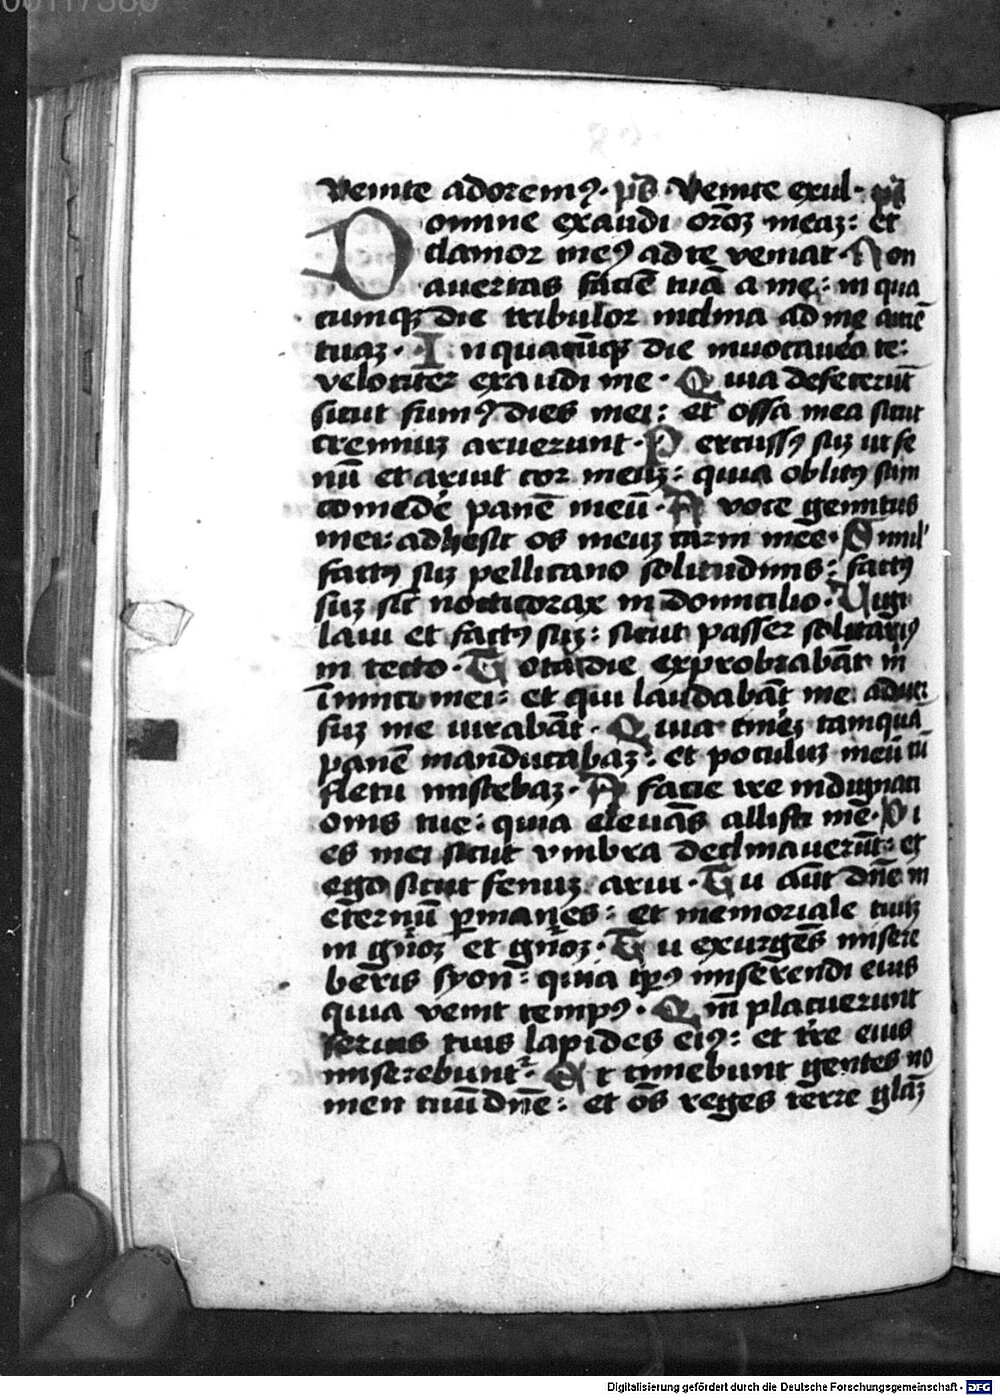 00117580
venite adoremꝰ. p̄s Venite exul. p̄s
Domine exaudi oroēꝫ meaꝫ: et
clamor meꝰ ad te veniat. Non
avertas faciē tuā a me: in qua
cumqꝫ die tribulor inclina ad me aurē
tuaꝫ. In quacūqꝫ die invocavero te:
velociter exaudi me. Quia defecerūt
sicut fumꝰ dies mei: et ossa mea sicut
cremiuꝫ aruerunt. Percussꝰ suꝫ ut fe
nū et aruit cor meuꝫ: quia oblitꝰ sum
comedē panē meū. A voce gemitus
mei: adhesit os meuꝫ carni mee. Simil'
factꝰ suꝫ pellicano solitudinis: factꝰ
suꝫ sic̄ nocticorax in domicilio. Vigi
lavi et factꝰ suꝫ: sicut passer solitariꝰ
in tecto. Tota die exprobrabāt m̄
inimici mei: et qui laudabāt me adver
suꝫ me iurabāt. Quia cinēꝫ tamquā
panē manducabaꝫ: et poculuꝫ meū cū
fletu miscebaꝫ. A facie ire indignati
onis tue: quia elevās allisti me. Di
es mei sicut vmbra declinaverūt: et
ego sicut fenuꝫ arui. Tu aūt dn̄e in
eternū ꝑmanes: et memoriale tuuꝫ
in gn̄oeꝫ et gn̄oeꝫ. Tu exurgēs misere
beris syon: quia tp̄ꝰ miserendi eius
quia venit tempꝰ. Qm̄ placuerunt
servis tuis lapides eiꝰ: et tr̄re eius
miserebunt᷑. Et timebunt gentes no
men tuū dn̄e: et om̄s reges terre gl̄aꝫ
Digitalisierung gefördert durch die Deutsche Forschungsgemeinschaft - DFG